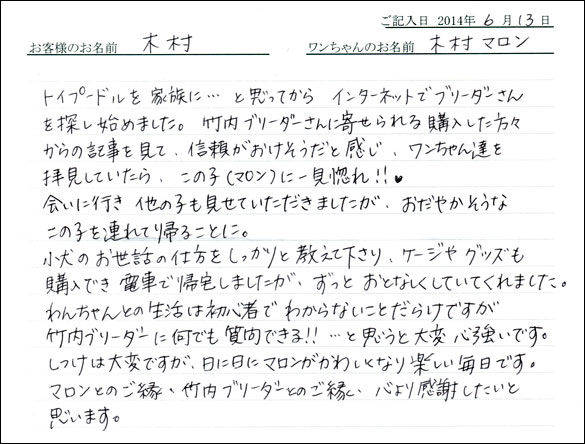 ご記入日 2014年 6月13日
お客様のお名前 木村 ワンちゃんのお名前 木村マロン
トイプードルを家族に… と思ってから インターネットでブリーダーさん
を探し始めました。竹内ブリーダーさんに寄せられる購入した方々
からの記事を見て、信頼がおけそうだと感じ、ワンちゃん達を
拝見していたら、この子(マロン)に一見惚れ!!♥
会いに行き 他の子も見せていただきましたが、おだやかそうな
この子を連れて帰ることに。
小犬のお世話の仕方をしっかりと教えて下さり、ケージやグッズも
購入でき 電車で帰宅しましたが、ずっと おとなしくしていてくれました。
わんちゃんとの生活は初心者で わからないことだらけですが
竹内ブリーダーに何でも質問できる!! …と思うと大変 心強いです。
しつけは大変ですが、日に日にマロンがかわいくなり 楽しい毎日です。
マロンとのご縁・竹内ブリーダーとのご縁、心より感謝したいと
思います。